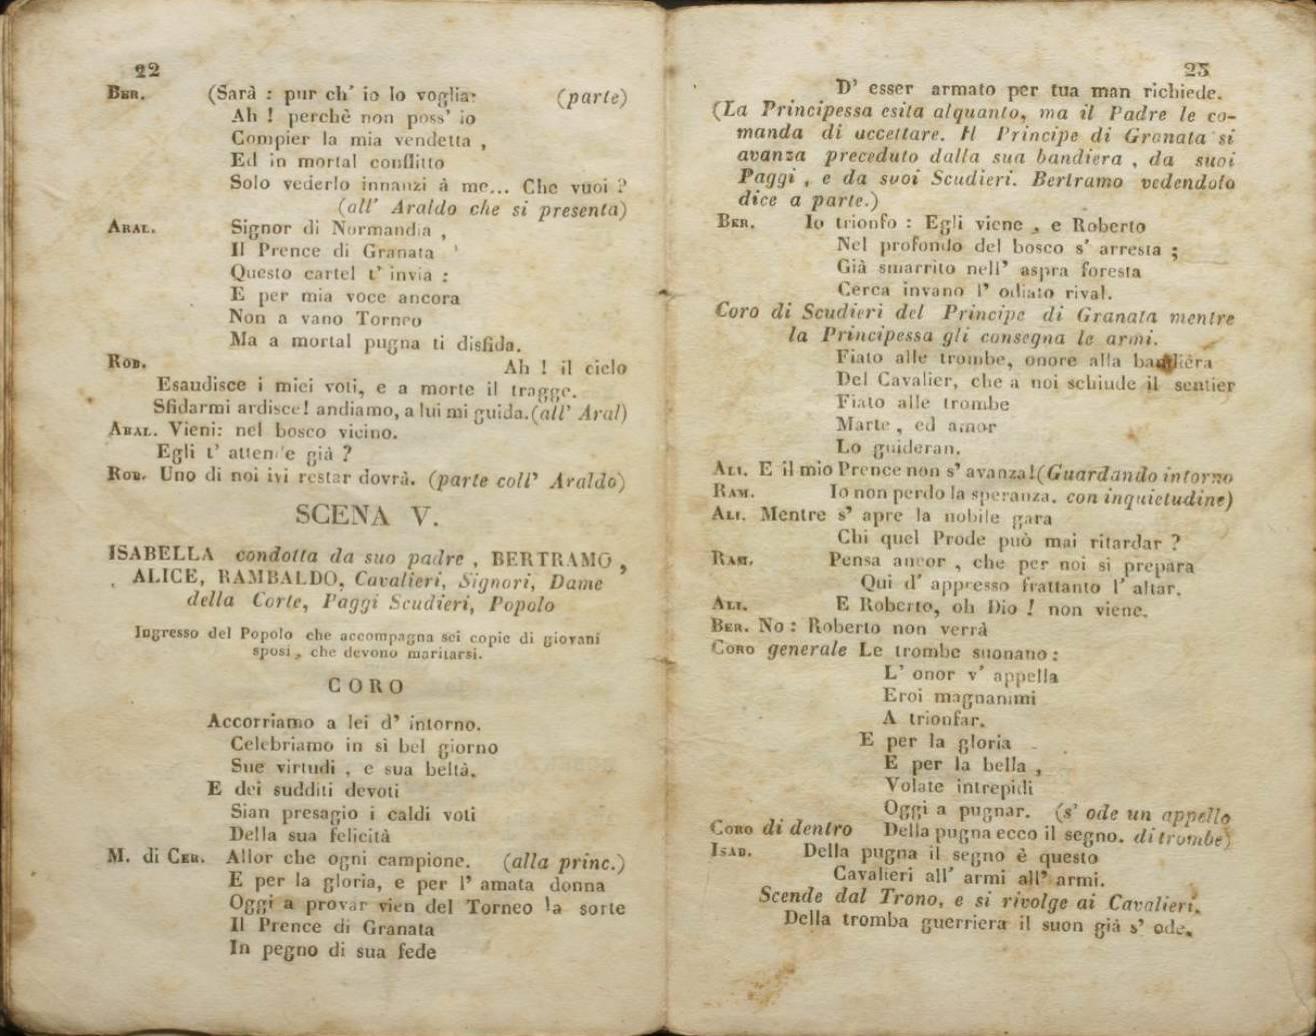 22
BER. (Sarà : pur ch' io lo voglia: (parte)
Ah ! perchè non poss' io
Compier la mia vendetta ,
Ed in mortal conflitto
Solo vederlo innanzi à me... Che vuoi ?
(all' Araldo che si presenta)
ARAL. Signor di Normandia ,
Il Prence di Granata
Questo cartel t' invia :
E per mia voce ancora
Non a vano Torneo
Ma a mortal pugna ti disfida.
ROB. Ah ! il cielo
Esaudisce i miei voti, e a morte il tragge.
Sfidarmi ardisce! andiamo, a lui mi guida.(all' Aral)
ARAL. Vieni: nel bosco vicino.
Egli t' attende già ?
ROB. Uno di noi ivi restar dovrà. (parte coll' Araldo)
SCENA V.
ISABELLA condotta da suo padre , BERTRAMO ,
ALICE, RAMBALDO, Cavalieri, Signori, Dame
della Corte, Paggi Scudieri, Popolo
Ingresso del Popolo che accompagna sei copie di giovani
sposi , che devono maritarsi.
CORO
Accorriamo a lei d' intorno.
Celebriamo in sì bel giorno
Sue virtudi , e sua beltà.
E dei sudditi devoti
Sian presagio i caldi voti
Della sua felicità
M. di CER. Allor che ogni campione. (alla princ.)
E per la gloria, e per l' amata donna
Oggi a provar vien del Torneo la sorte
Il Prence di Granata
In pegno di sua fede
23
D' esser armato per tua man richiede.
(La Principessa esita alquanto, ma il Padre le co-
manda di accettare. Il Principe di Granata si
avanza preceduto dalla sua bandiera , da suoi
Paggi , e da suoi Scudieri. Bertramo vedendolo
dice a parte.)
BER. Io trionfo : Egli viene , e Roberto
Nel profondo del bosco s' arresta ;
Già smarrito nell' aspra foresta
Cerca invano l' odiato rival.
Coro di Scudieri del Principe di Granata mentre
la Principessa gli consegna le armi.
Fiato alle trombe, onore alla bandiera
Del Cavalier, che a noi schiude il sentier
Fiato alle trombe
Marte , ed amor
Lo guideran.
ALI. E il mio Prence non s' avanza!(Guardando intorno
RAM. Io non perdo la speranza. con inquietudine)
ALI. Mentre s' apre la nobile gara
Chi quel Prode può mai ritardar ?
RAM. Pensa ancor , che per noi si prepara
Qui d' appresso frattanto l' altar.
ALI. E Roberto, oh Dio ! non viene.
BER. No : Roberto non verrà
CORO generale Le trombe suonano :
L' onor v' appella
Eroi magnanimi
A trionfar.
E per la gloria
E per la bella ,
Volate intrepidi
Oggi a pugnar. (s' ode un appello
CORO di dentro Della pugna ecco il segno. di trombe)
ISAB. Della pugna il segno è questo
Cavalieri all' armi all' armi.
Scende dal Trono, e si rivolge ai Cavalieri.
Della tromba guerriera il suon già s' ode.